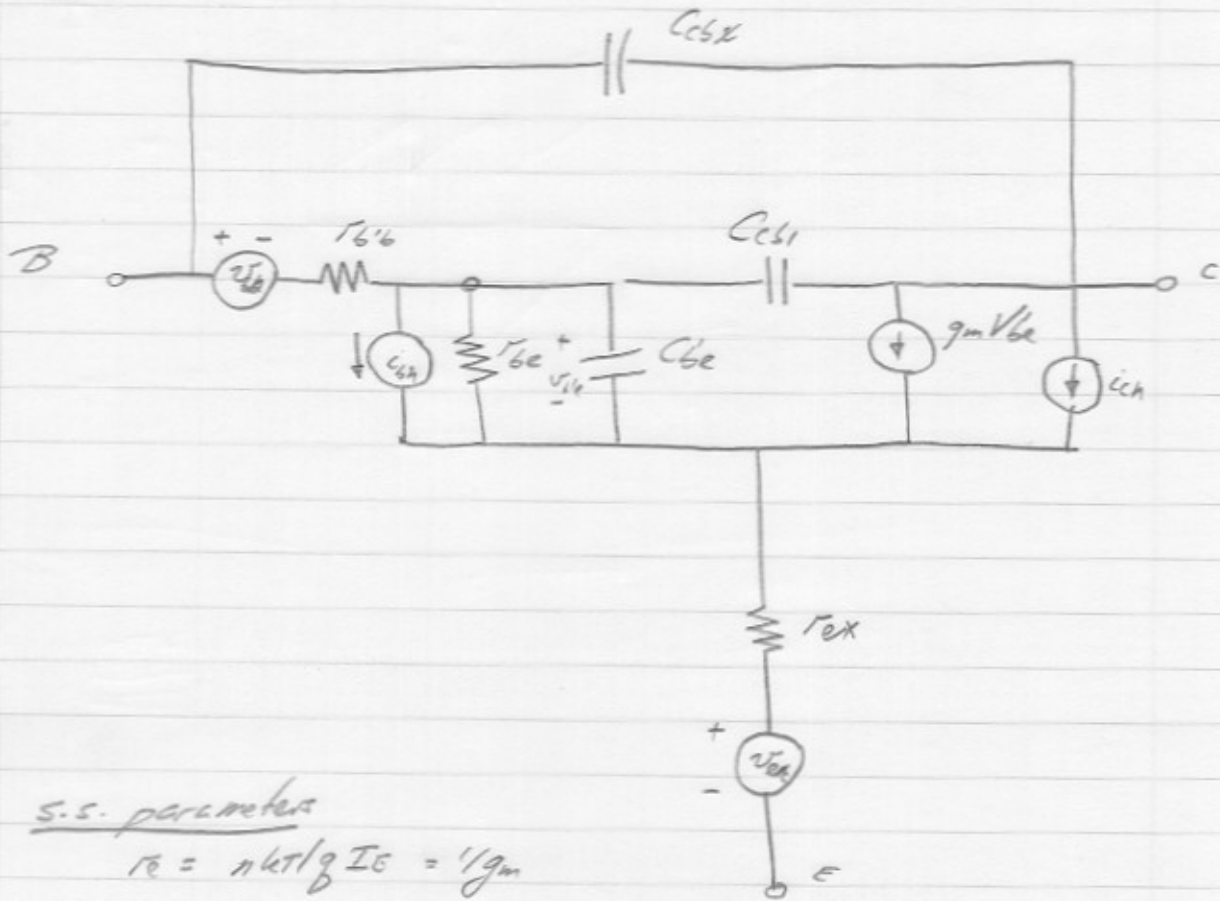 Ccbx
B
+ -
rb'b
Ccbi
C
ibn
rbe
+
-
Cbe
gmVbe
icn
rex
+
ven
-
E
s.s. parameters
re = nkT/qIE = 1/gm